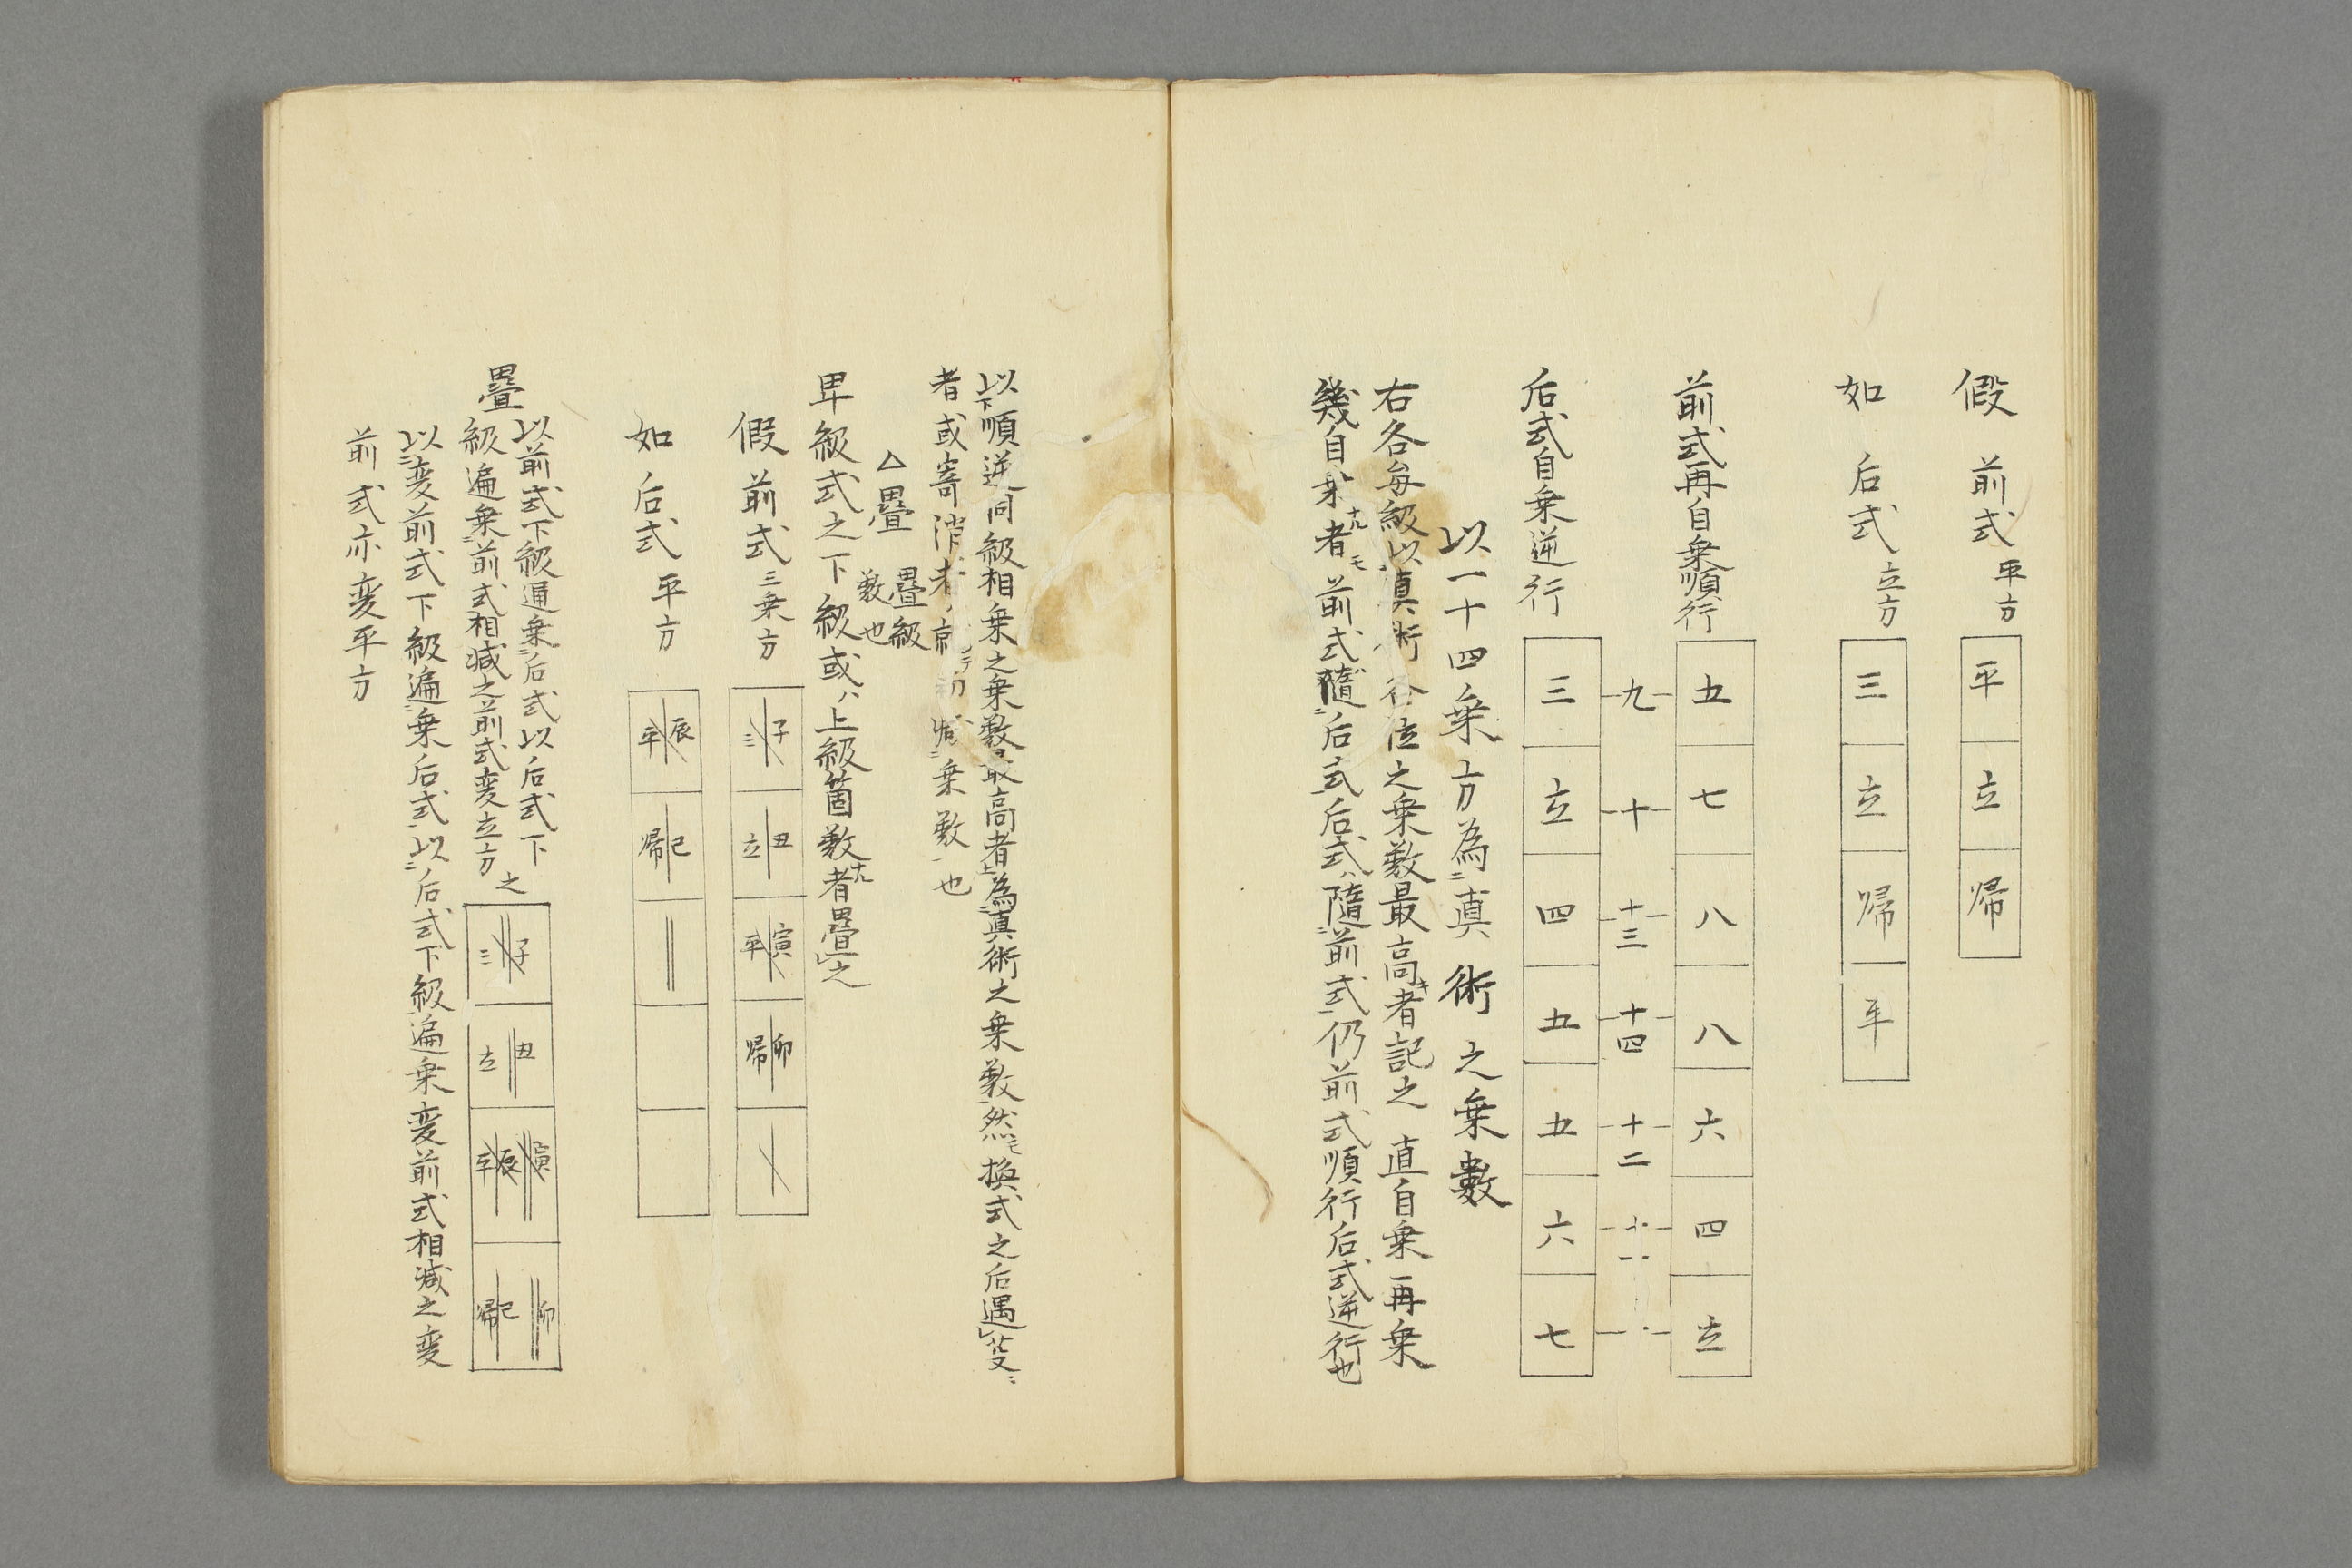 假 前式 平方 平 立 帰
如 后式 立方 三 立 帰 平
前式再自乗順行 五 七 八 八 六 四 立
九 十 十三 十四 十二 十一
后式自乗逆行 三 立 四 五 五 六 七
以一十四乗方為ニ真術之乗數
右各毎級以真術各位之乗数最高キ者記之 直自乗再乗
幾自乗ナル者モ前式ハ隨ニ后式后式ハ隨ニ前式仍前式順行后式逆行也
以下順逆同級相乗之乗数最高者上為ニ真術之乗数然モ換式之后遇
者或寄消者 初 乗数一也
△疊 疊級数也
畢級式之下級或ハ上級箇数ナル者疊之
假 前式 三乗方 子三 丑立 寅平 卯帰
如 后式 平方 辰平 巳帰
疊 以前式下級通乗ニ后式以后式下
級遍乗ニ前式相減之前式変立方 之
子三 丑立 寅辰平 卯巳帰
以ニ変前式下級遍ニ乗后式以ニ后式下級遍乗変前式相減之変
前式亦変平方